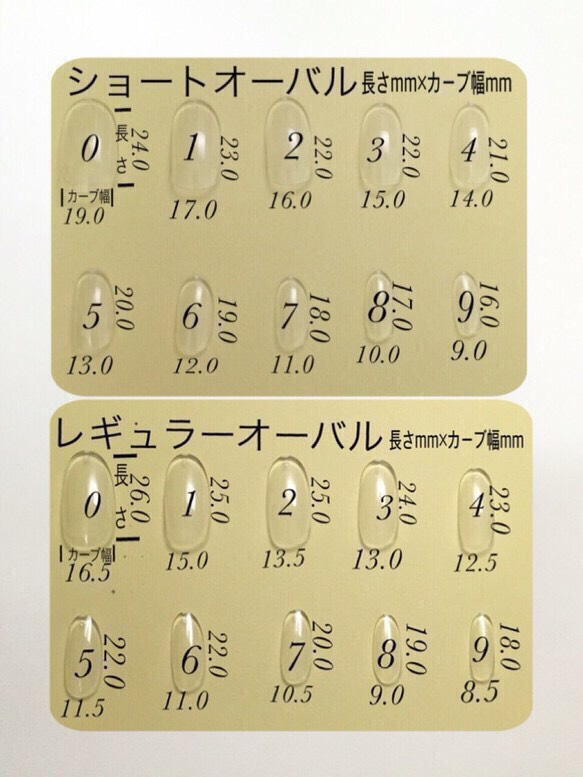 ショートオーバル 長さmm×カーブ幅mm
0 長さ 24.0 1 23.0 2 22.0 3 22.0 4 21.0
カーブ幅
19.0 17.0 16.0 15.0 14.0
5 20.0 6 19.0 7 18.0 8 17.0 9 16.0
13.0 12.0 11.0 10.0 9.0
レギュラーオーバル 長さmm×カーブ幅mm
0 長さ 26.0 1 25.0 2 25.0 3 24.0 4 23.0
カーブ幅
16.5 15.0 13.5 13.0 12.5
5 22.0 6 22.0 7 20.0 8 19.0 9 18.0
11.5 11.0 10.5 9.0 8.5